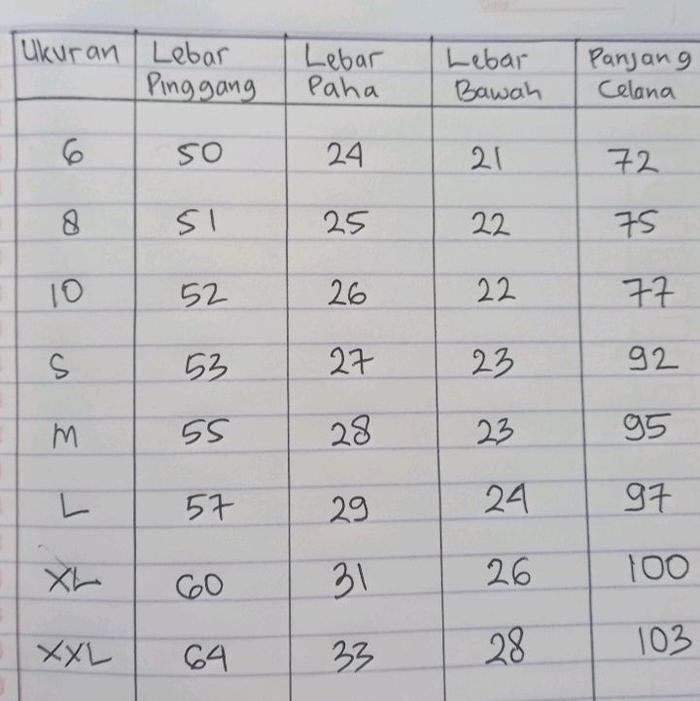 Ukuran Lebar Pinggang Lebar Paha Lebar Bawah Panjang Celana
6 50 24 21 72
8 51 25 22 75
10 52 26 22 77
S 53 27 23 92
M 55 28 23 95
L 57 29 24 97
XL 60 31 26 100
XXL 64 33 28 103